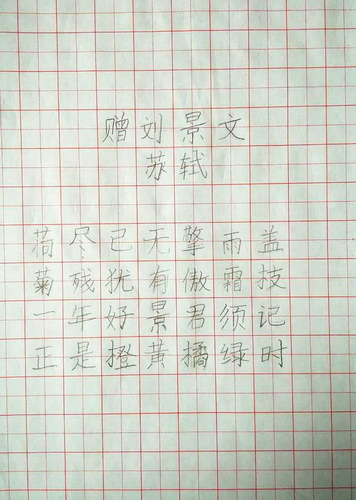 赠刘景文
苏轼
荷尽已无擎雨盖
菊残犹有傲霜技
一年好景君须记
正是橙黄橘绿时